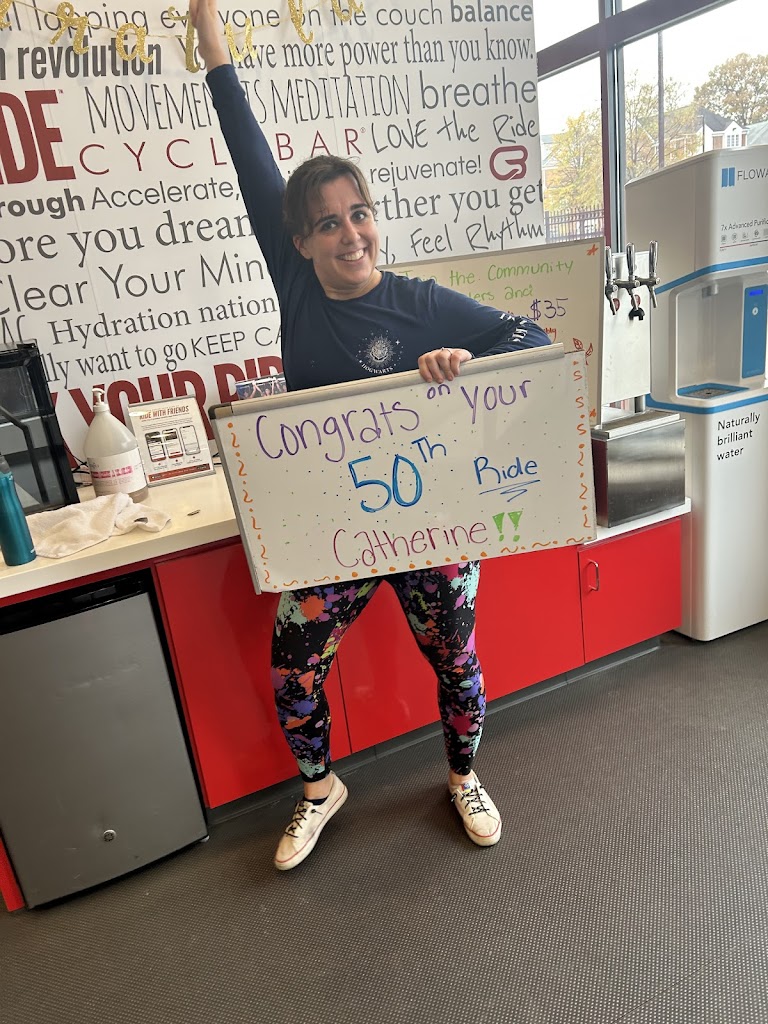 looping everyone on the couch balance
revolution
have more power than you know.
MOVEMENT IS MEDITATION breathe
CYCLEBAR® LOVE the Ride
Accelerate, rejuvenate! CB
ore you dream further you get
Feel Rhythm
Clear Your Min
Hydration nation
lly want to go KEEP CA
YOUR RID
Join the Community
and
$35
HOGWARTS
RIDE WITH FRIENDS
Congrats on your
50Th Ride
Catherine!!
FLOWA
7x Advanced Purific
Naturally
brilliant
water